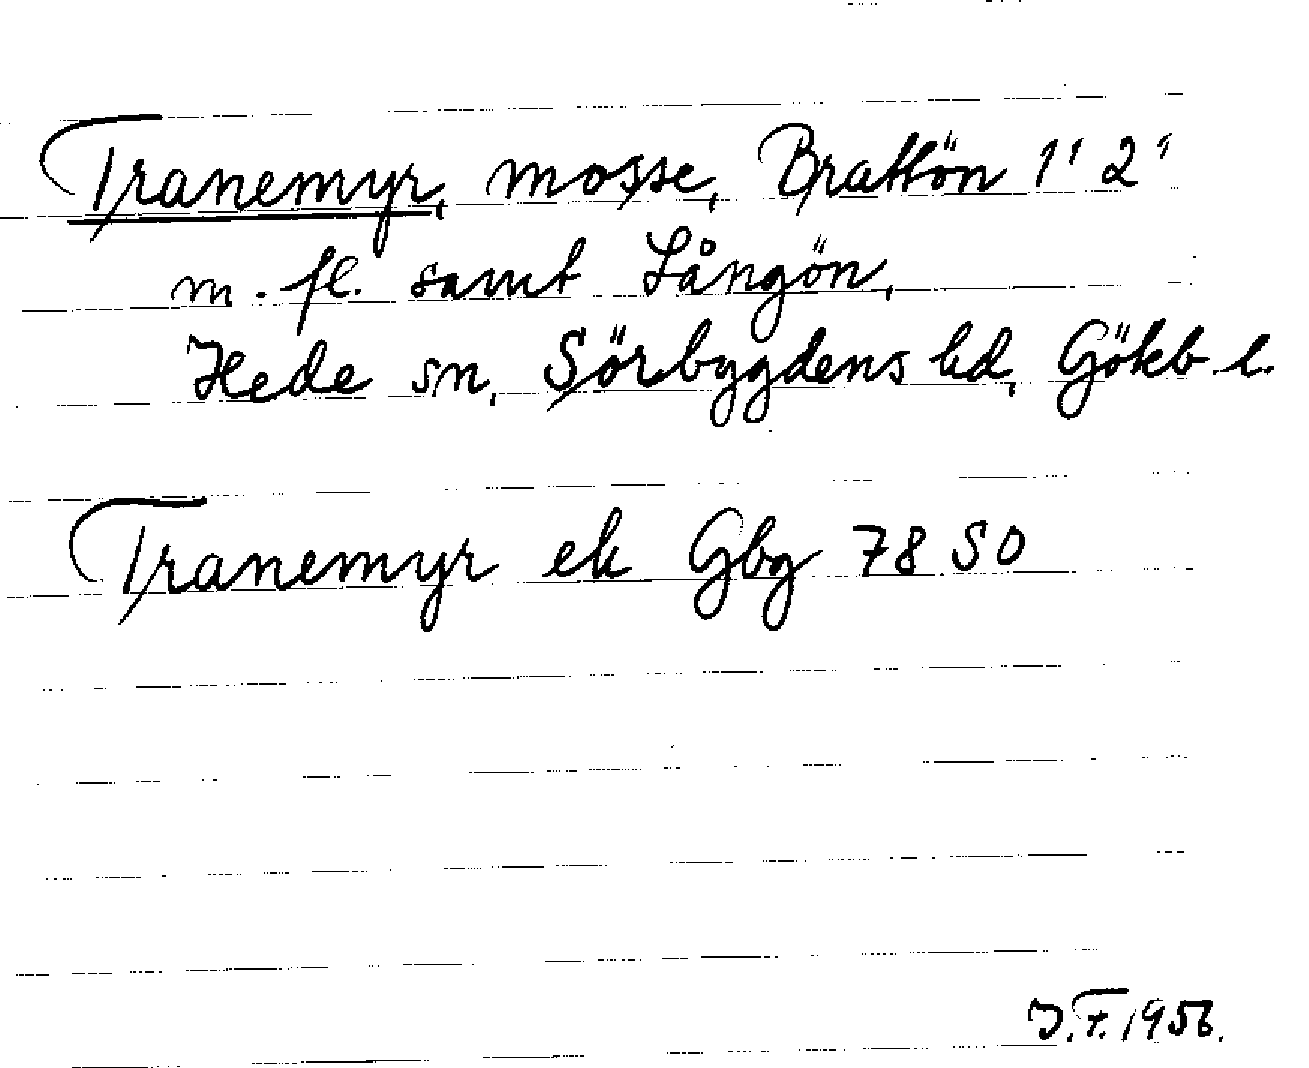 Tranemyr, mosse, Brattön 1' 2'
m. fl. samt Långön,
Hede sn, Sörbygdens hd, Gökb. l.
Tranemyr ek Gbg 78 SO
J.F. 1956.